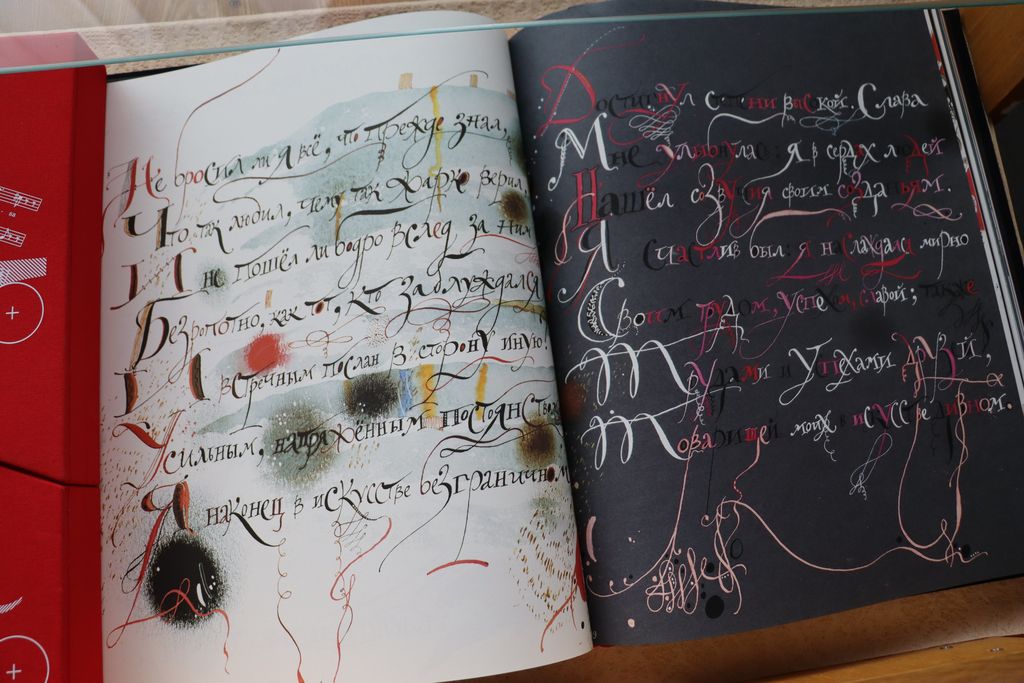 Не бросил ли я всё, что прежде знал,
Что так любил, чему так жарко верил,
И не пошёл ли бодро вслед за ним
Безропотно, как тот, кто заблуждался
И встречным послан в сторону иную?
Усильным, напряжённым постоянством
Я наконец в искусстве безграничном
Достигнул степени высокой. Слава
Мне улыбнулась; я в сердцах людей
Нашёл созвучия своим созданьям.
Я счастлив был: я наслаждался мирно
Своим трудом, успехом, славой; также
Трудами и успехами друзей,
Товарищей моих в искусстве дивном.